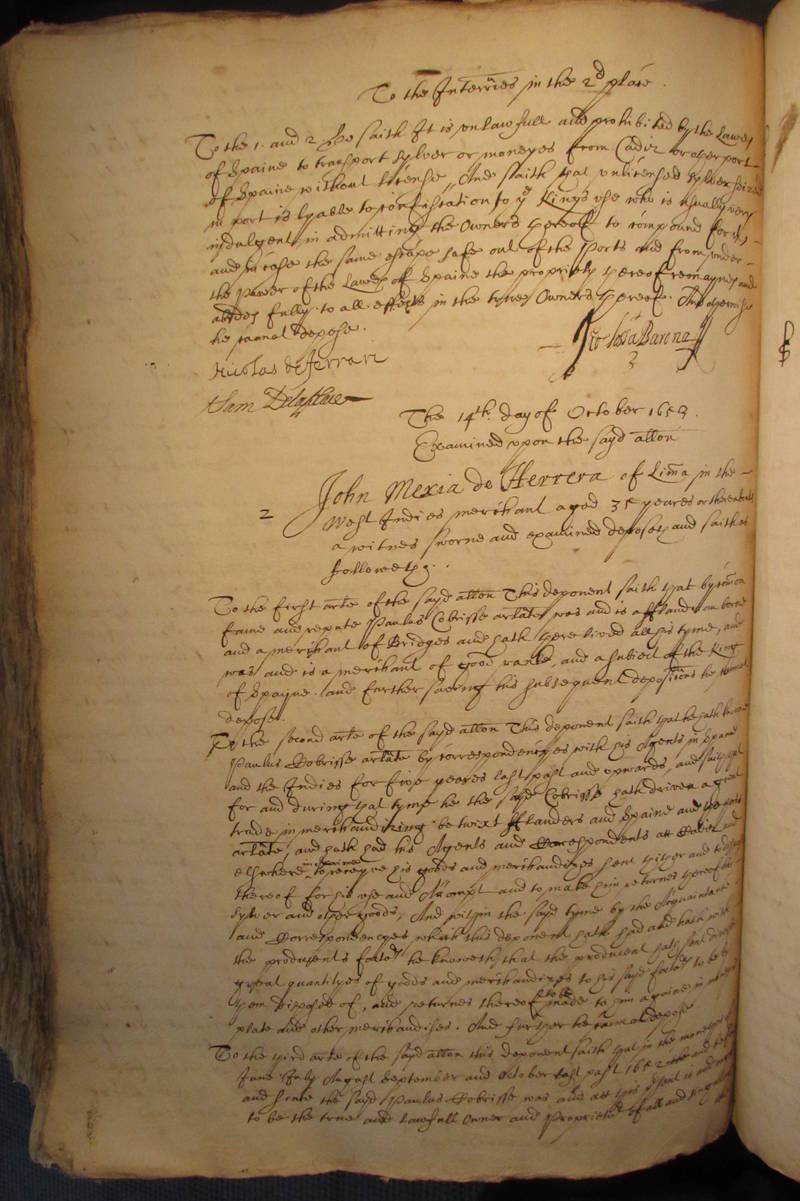 To the Interries in the 2d place.
To the 1. and 2 hee saith It is unlawfull and prohibited by the Lawes
of Spaine to transport sylver or moneyes from Cadiz or other port
of Spaine without license, And saith that unlicensed sylver seized
in port is lyable to confiscation to ye Kings use who is usually very
indulgent in admitting the Owners thereof to compound for it,
and in case the same escape safe out of the Ports and from under
the Power of the Lawes of Spaine the propriety thereof remaynes and
abides fully to all effects in the true Owners thereof. And otherwise
he cannot depose.
Nicolas de
Sam
The 14th. day of October 1653.
Examined upon the sayd allon
2 John Mexia de Herrera of Lima in the
West Indies merchant aged 35 yeares or thereabouts
a witnes sworne and examined deposeth and saith as
followeth.
To the first arle of the sayd allon This deponent saith that by comon
fame and repute Paulus Cobrisse arlate was and is a fflandrian borne
and a merchant of Bridges and hath there lived all his tyme, and
was and is a merchant of good ranke, and a subiect of the King
of Spayne. and further saveing his subsequent depositions he cannot
depose.
To the second arle of the sayd allon This deponent saith that he hath knowne
Paulus Cobrisse arlate by correspondencyes with his Agents in Spaine
and the Indies for five yeares last past and upwards, and saith that
for and during that tyme he the sayd Cobrisse hath driven a great
trade in merchandizing betwixt Flanders and Spaine and the ports
arlate, and hath had his Agents and Correspondents att Cadiz and
elsewhere, to receyve his goods and merchandizes sent thither and to dispose
thereof for his use and Accompt and to make him returnes thereof in
sylver and other goods, And within the sayd tyme by the Acquaintance
and Correspondencyes which this deponent hath had and hath with
the producents factors he knoweth that the producent hath sent divers
great quantityes of goods and merchandizes to his sayd factors to be by
them disposed of, and returnes thereof to be made to him againe in
plate and other merchandises. And further he cannot depose.
To the third arle of the sayd allon this deponent saith that in the moneths of
June July August September and October last past 1652 and
and since the sayd Paulus Cobrisse was and att this present is and
to be the true and Lawfull Owner and Proprietor of all and singular